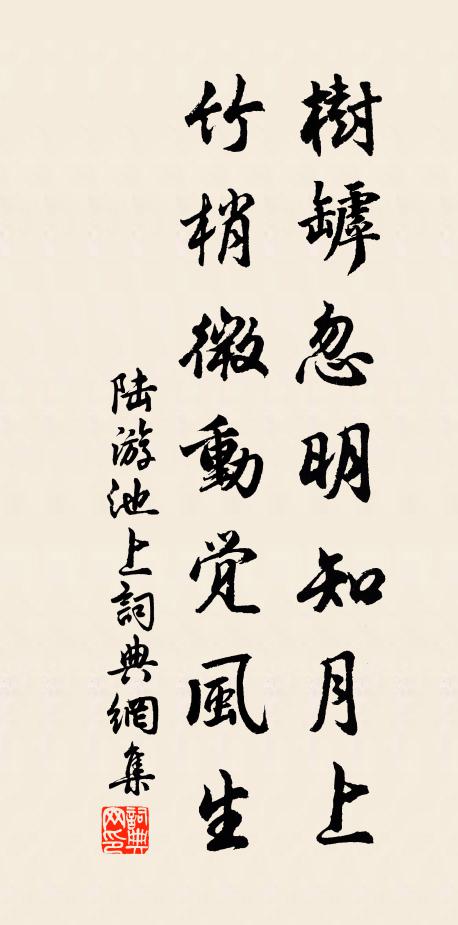 樹罅忽明知月上
竹梢微動觉風生
陆游池上詞典網集
詞典网印